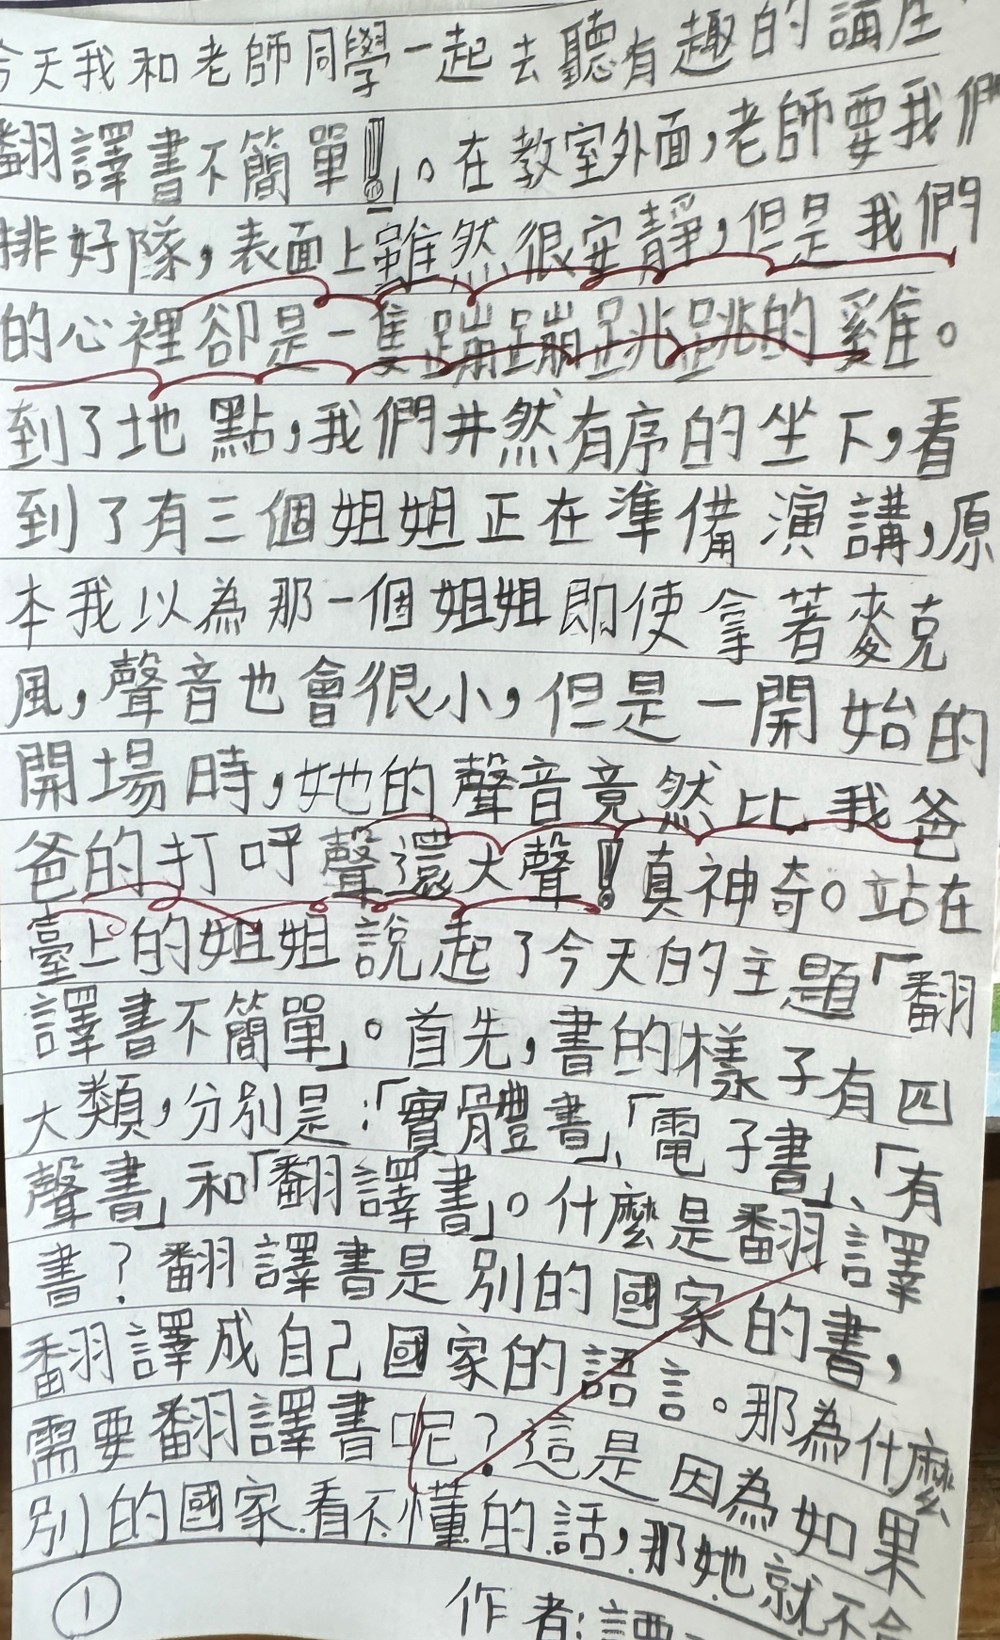 今天我和老師同學一起去聽有趣的講座
翻譯書不簡單!」。在教室外面,老師要我們
排好隊,表面上雖然很安靜,但是我們
的心裡卻是一隻蹦蹦跳跳的雞。
到了地點,我們井然有序的坐下,看
到了有三個姐姐正在準備演講,原
本我以為那一個姐姐即使拿著麥克
風,聲音也會很小,但是一開始的
開場時,她的聲音竟然比我爸
爸的打呼聲還大聲!真神奇。站在
臺上的姐姐說起了今天的主題「翻
譯書不簡單」。首先,書的樣子有四
大類,分別是:「實體書」、「電子書」、「有
聲書」和「翻譯書」。什麼是翻譯
書?翻譯書是別的國家的書,
翻譯成自己國家的語言。那為什麼
需要翻譯書呢?這是因為如果
別的國家看不懂的話,那她就不會
①
作者:譚